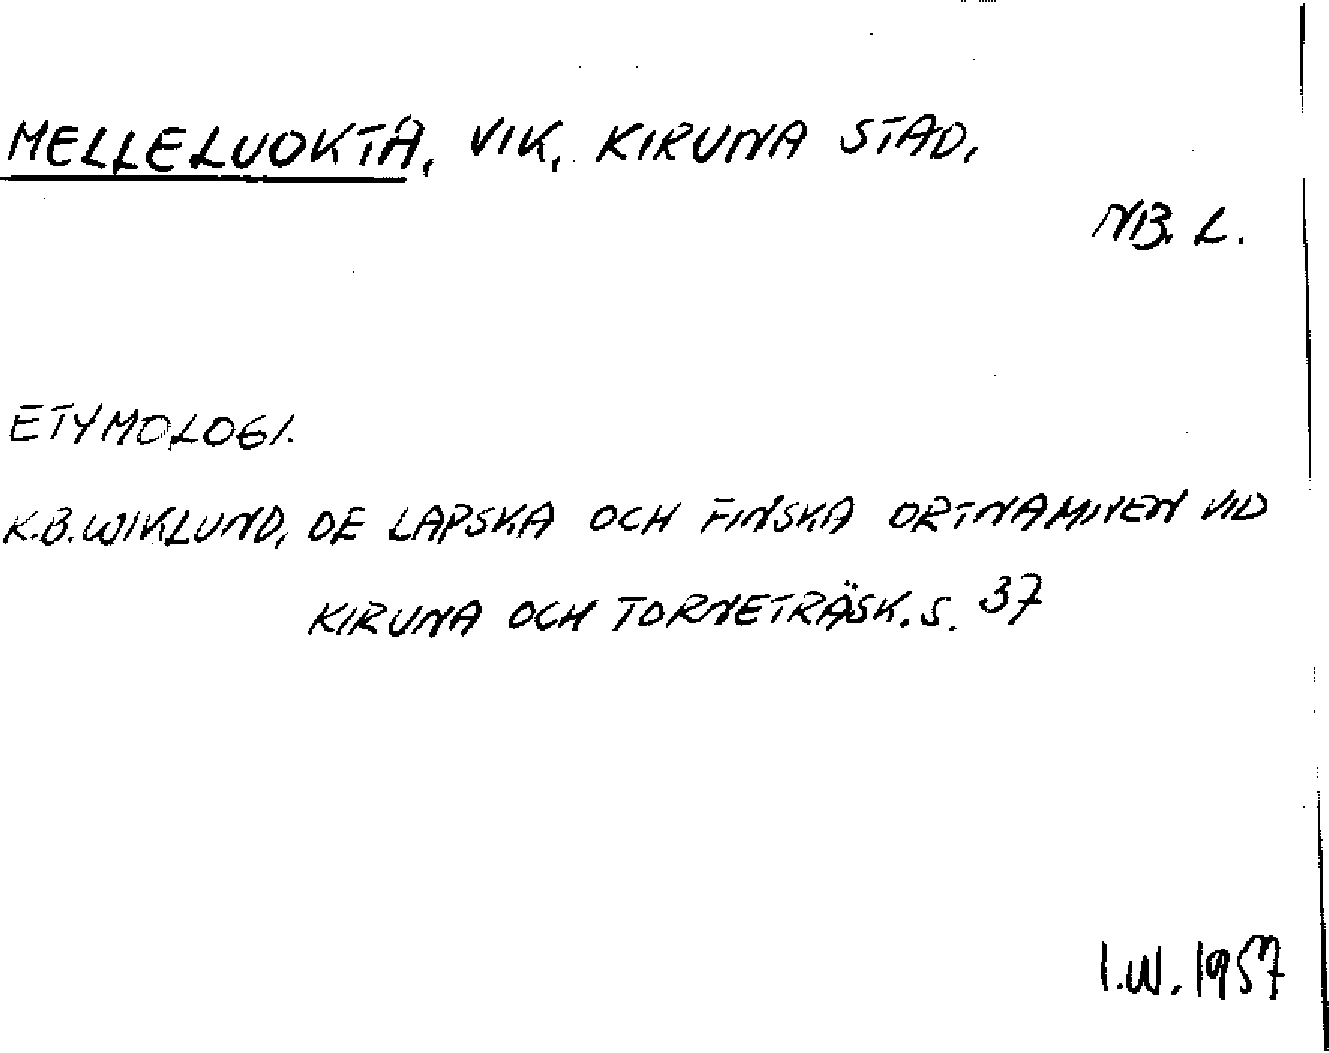 MELLELUOKTA, VIK, KIRUNA STAD,
NB. L.
ETYMOLOGI.
K.B. WIKLUND, DE LAPSKA OCH FINSKA ORTNAMNEN VID
KIRUNA OCH TORNETRÄSK. S. 37
I.W. 1957